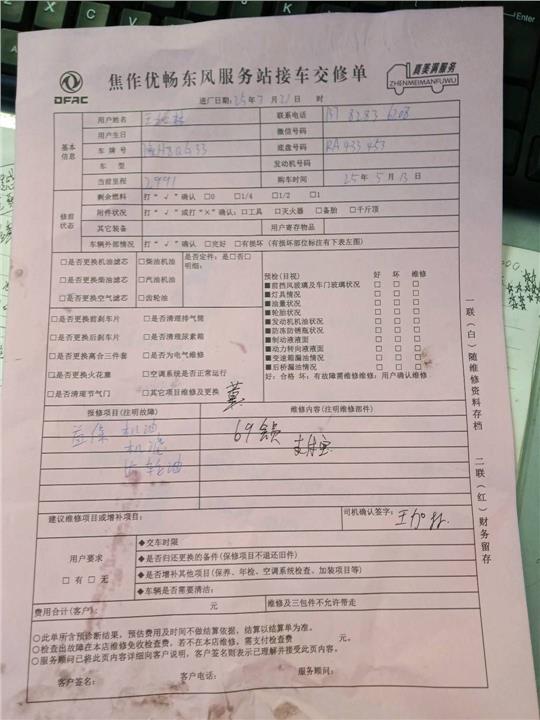 DFAC
焦作优畅东风服务站接车交修单
真美满服务
ZHENMEIMANFUWU
进厂日期:25年7月21日 时
基本信息
用户姓名 联系电话
用户生日 微信号码
车 牌 号 底盘号码 RA433453
车 型 发动机号码
当前里程 2991 购车时间 25年5月13日
修前状态
剩余燃料 打“√”确认 □0 □1/4 □1/2 □1
附件状况 打“√”或打“×”确认:□工具 □灭火器 □备胎 □千斤顶
其它装备 用户寄存物品
车辆外部情况 打“√”确认 □完好 □有损坏(有损坏部位标注有下表左图)
□是否更换机油滤芯 □柴油机油 是否定件:是□否□
□是否更换柴油滤芯 □汽油机油 明细:
□是否更换空气滤芯 □齿轮油
□是否更换前刹车片 □是否清理排气筒
□是否更换后刹车片 □是否清理尿素箱
□是否更换离合三件套 □是否为电气维修
□是否更换火花塞 □空调系统是否正常运行
□是否清理节气门 □其它项目维修及更换
预检(目视) 好 坏 维修
■前挡风玻璃及车门玻璃状况 □ □ □
■灯具情况 □ □ □
■油量状况 □ □ □
■轮胎状况 □ □ □
■发动机机油状况 □ □ □
■防冻防锈瓶状况 □ □ □
■制动液液面 □ □ □
■动力转向液液面 □ □ □
■变速箱漏油情况 □ □ □
■后桥漏油情况 □ □ □
好:合格 坏:有故障需维修维修:用户确认维修
报修项目(注明故障) 维修内容(注明维修部件)
机油 69
机滤 支付宝
齿轮油
建议维修项目或增补项目: 司机确认签字:
用户要求
□有 □无
◆交车时限
◆是否归还更换的备件(保修项目不退还旧件)
◆是否增补其他项目(保养、年检、空调系统检查、加装项目等)
◆车辆是否需要清洁:
费用合计(客户): 元 维修及三包件不允许带走
○此单所含预诊断结果,预估费用及时间不做结算依据,结算以结算单为准。
○检查出故障在本店维修免收检查费,若不在本店维修,需支付检查费 元。
○服务顾问已将此页内容详细向客户说明,客户签名则表示已理解并接受此页内容。
客户签名: 客户电话: 服务顾问:
一联(白)随维修资料存档 二联(红)财务留存